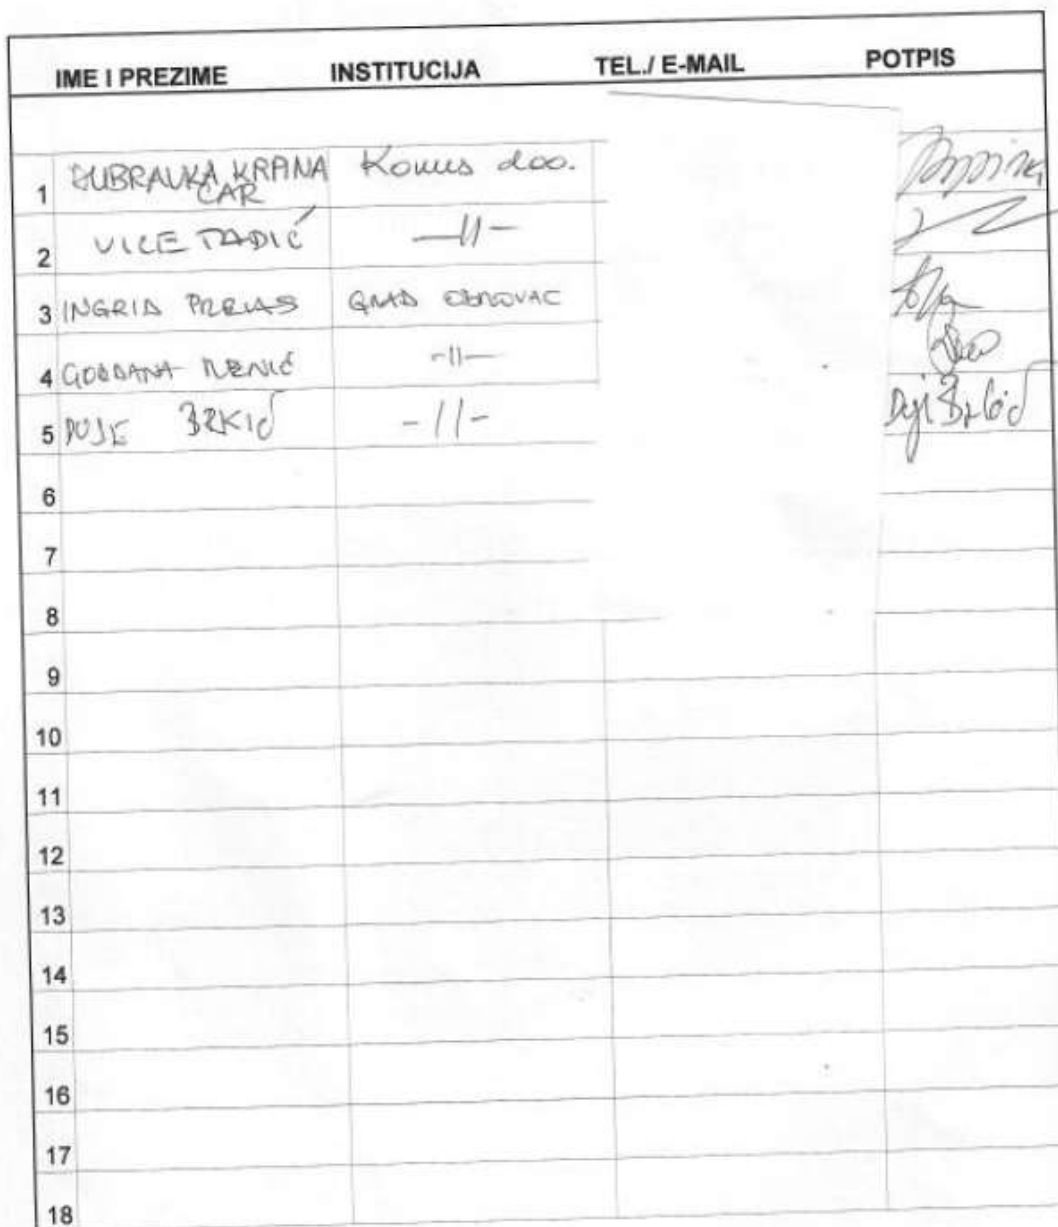 IME I PREZIME INSTITUCIJA TEL./ E-MAIL POTPIS
1 DUBRAVKA KRPINA Konus d.o.o.
CAR
2 VICE TADIĆ —11—
3 INGRID GRAD OBROVAC
4 GORDANA -11-
5 DUJE BRKIĆ -11- Duje Brkić
6
7
8
9
10
11
12
13
14
15
16
17
18